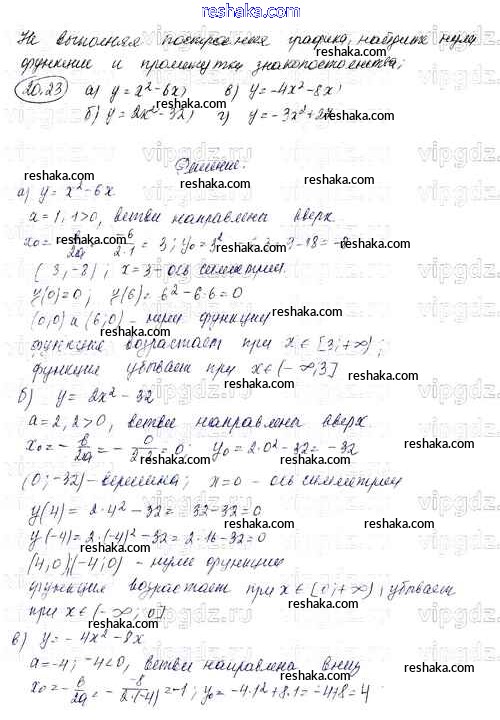 reshaka.com
Не выполняя построения графика, найдите нули
функции и промежутки знакопостоянства;
20.23 а) y = x² - 6x; в) y = -4x² - 8x;
б) y = 2x² - 32; г) y = -3x² + 27
Решение.
а) y = x² - 6x
a = 1, 1>0, ветви направлены вверх.
(3, -8); x = 3 - ось симметрии.
y(0) = 0; y(6) = 6² - 6·6 = 0
(0,0) и (6,0) - нули функции
функция возрастает при x ∈ [3; +∞);
функция убывает при x ∈ (-∞; 3]
б) y = 2x² - 32
a = 2, 2>0, ветви направлены вверх.
x₀ = -в/2a = -0/2·2 = 0; y₀ = 2·0² - 32 = -32
(0; -32) - вершина; x = 0 - ось симметрии
y(4) = 2·4² - 32 = 32 - 32 = 0
y(-4) = 2·(-4)² - 32 = 2·16 - 32 = 0
(4,0)(-4;0) - нули функции
функция возрастает при x ∈ [0; +∞); убывает
при x ∈ (-∞; 0]
в) y = -4x² - 8x
a = -4; -4<0, ветви направлена вниз
x₀ = -в/2a = -(-8)/2·(-4) = -1; y₀ = -4·1² + 8·1 = -4+8 = 4